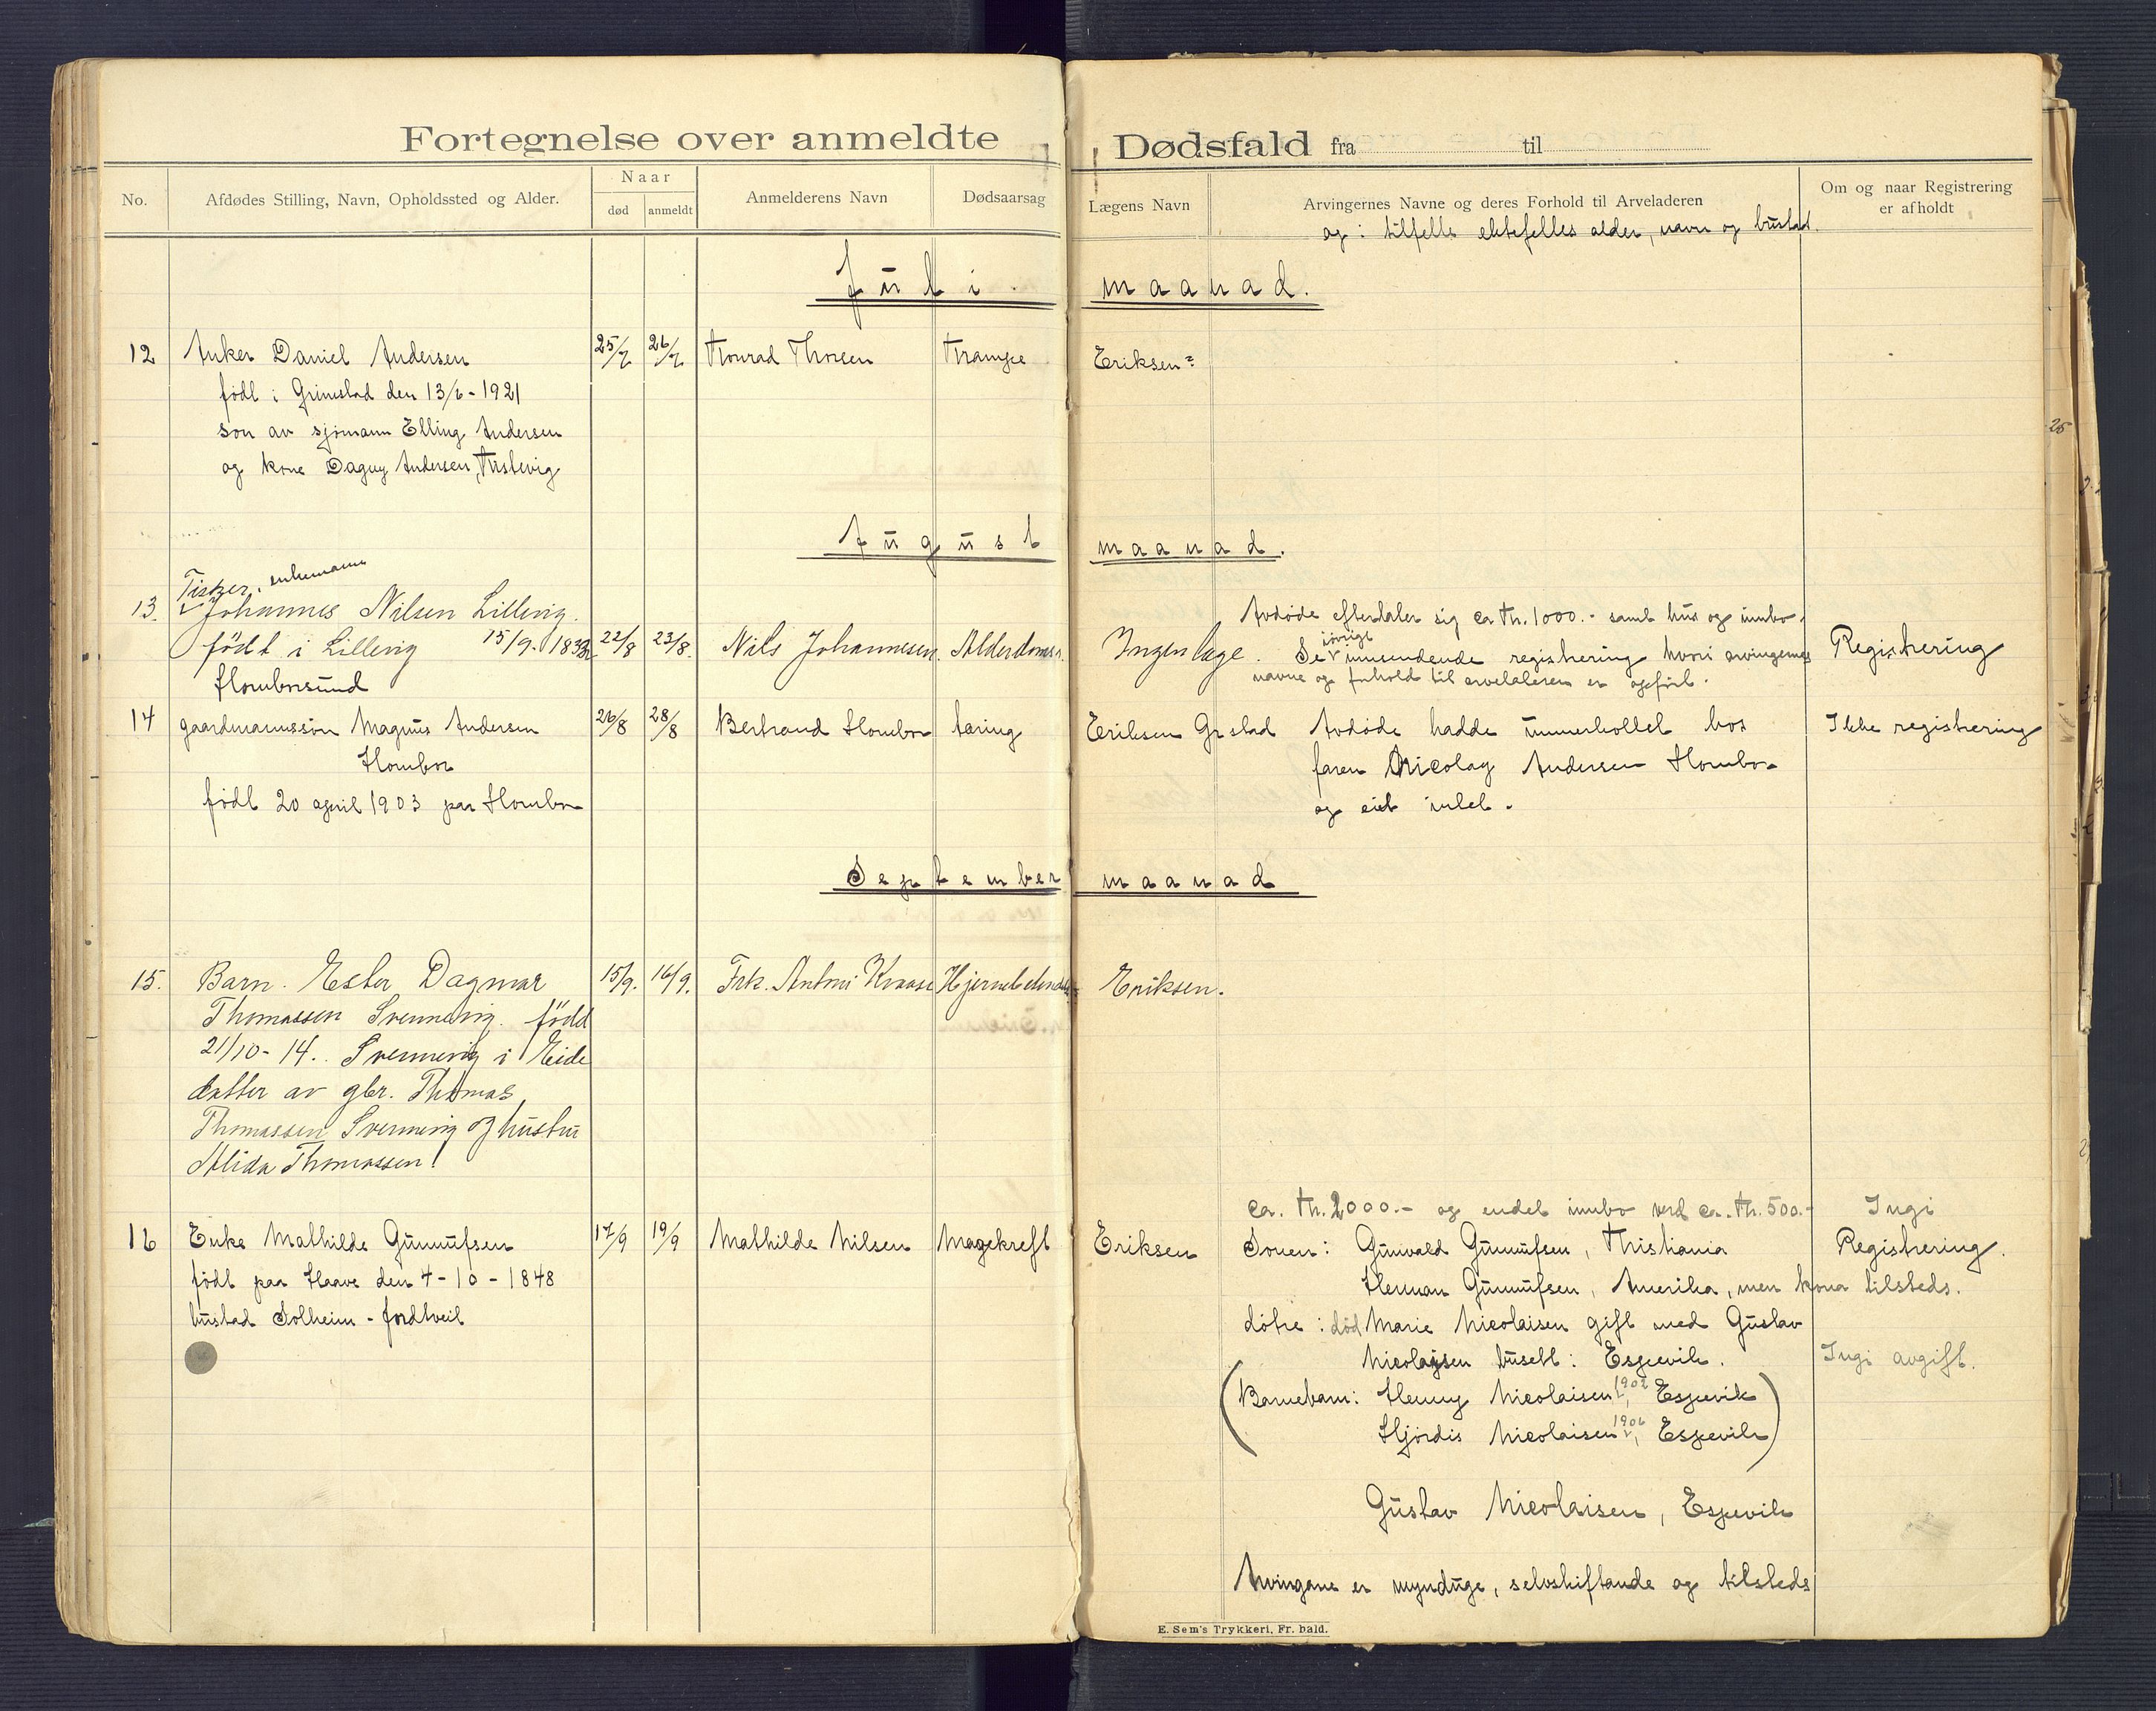 Fortegnelse over anmeldte Dødsfald fra til
No.
Afdødes Stilling, Navn, Opholdssted og Alder.
Naar
død
anmeldt
Anmelderens Navn
Dødsaarsag
Lægens Navn
Arvingernes Navne og deres Forhold til Arveladeren
og i tilfelle ektefelles alder, navn og bustad.
Om og naar Registrering
er afholdt
Juli maanad.
12 Anker Daniel Andersen 25/7 26/7 Konrad Thorsen Krampe Eriksen
født i Grimstad den 13/6 - 1921
son av sjømann Elling Andersen
og kone Dagny Andersen,
August maanad.
Fisker, enkemann
13. Johannes Nilsen Lillevig.
født i Lillevig 15/9. 22/8 23/8. Nils Johannesen. Alderdomss. Ingen læge.
Homborsund
Avdøde efterlater sig ca kr. 1000.- samt hus og innbo.
Se iøvrigt innsendende registrering hvori arvingernes
navne og forhold til arvelateren er opført.
Registrering
14 gaardmannssøn Magnus Andersen 26/8 28/8 Bertrand Hombor tæring Eriksen Gr stad Avdøde hadde underholdet hos Ikke registrering
Hombor
faren Nicolay Andersen Hombor
født 20 april 1903 paa Hombor
og eiet intet.
September maanad
15. Barn. Ester Dagmar 15/9. 16/9. Frk. Antoni Eriksen.
Thomassen Svennevig. født
21/10 - 14. Svennevig i Eide
datter av gbr. Thomas
Thomassen Svennevig og hustru
Alida Thomassen
ca. kr. 2000.- og endel innbo verd ca. kr. 500.- Ingi
16 Enke Mathilde Gunnufsen 17/9 19/9 Mathilde Nilsen Magekreft Eriksen Sonen: Gunvald Gunnufsen, Kristiania Registrering.
født paa Haave den 4-10-1848
Herman Gunnufsen, Amerika, men kona tilsteds.
bustad Solheim - Jortveit
døtre: død Marie Nicolaisen gift med Gustav
Nicolaysen busett: Espevik. Ingi avgift.
(Barnebarn: Henny Nicolaisen 1902, Espevik
Hjørdis Nicolaisen 1906, Espevik)
Gustav Nicolaisen, Espevik
Arvingane er mynduge, selvskiftande og tilsteds
E. Sem's Trykkeri, Fr. hald.
25